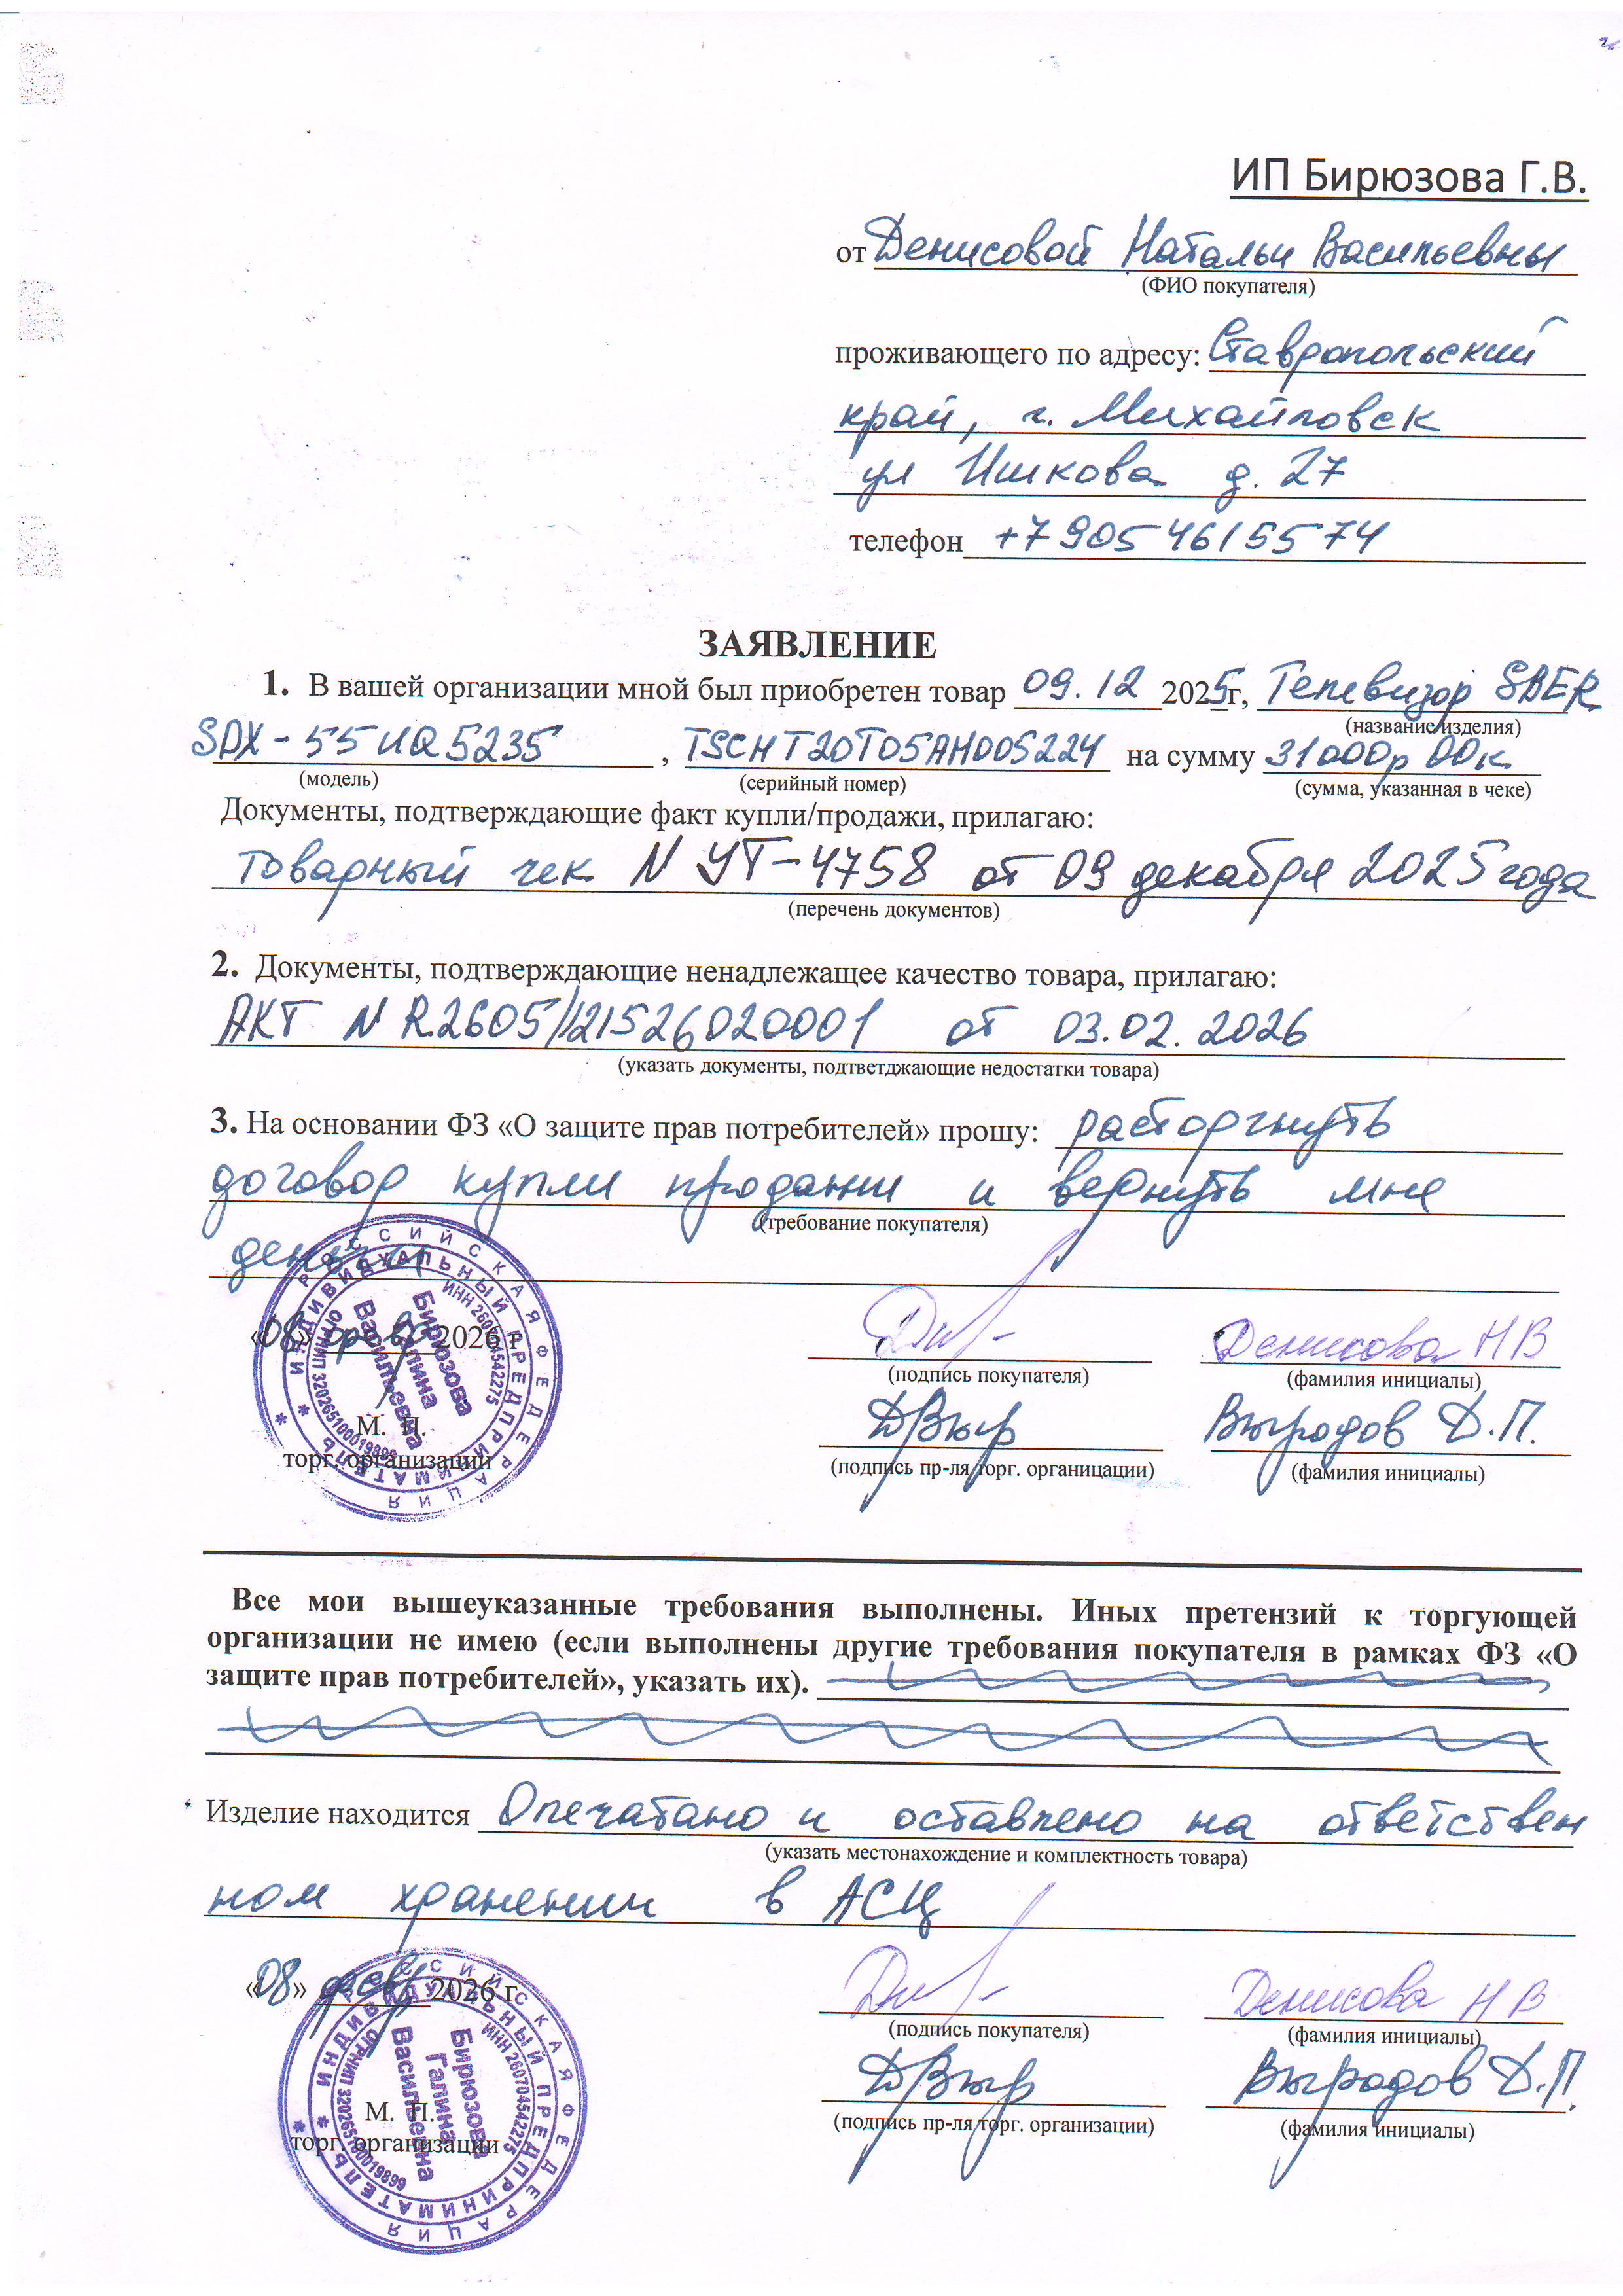 ИП Бирюзова Г.В.
от Денисовой Натальи Васильевны
(ФИО покупателя)
проживающего по адресу: Ставропольский
край, г. Михайловск
ул Ишкова д. 27
телефон +79054615574
ЗАЯВЛЕНИЕ
1. В вашей организации мной был приобретен товар 09.12 2025г, Телевизор SBER
(название изделия)
SDX-55UQ5235, TSCHT20T05AH005224 на сумму 31000р 00к
(модель) (серийный номер) (сумма, указанная в чеке)
Документы, подтверждающие факт купли/продажи, прилагаю:
Товарный чек N УТ-4758 от 09 декабря 2025 года
(перечень документов)
2. Документы, подтверждающие ненадлежащее качество товара, прилагаю:
АКТ N R2605/121526020001 от 03.02.2026
(указать документы, подтветджающие недостатки товара)
3. На основании ФЗ «О защите прав потребителей» прошу: расторгнуть
договор купли продажи и вернуть мне
(требование покупателя)
деньги
«08» 2026 г
Денисова Н В
(подпись покупателя) (фамилия инициалы)
Выродов Д.П.
М. П.
торг. организации
(подпись пр-ля торг. органицации) (фамилия инициалы)
РОССИЙСКАЯ ФЕДЕРАЦИЯ
ИНДИВИДУАЛЬНЫЙ ПРЕДПРИНИМАТЕЛЬ
ИНН 260704542275
ОГРНИП 320265100019899
Бирюзова
Галина
Васильевна
Все мои вышеуказанные требования выполнены. Иных претензий к торгующей
организации не имею (если выполнены другие требования покупателя в рамках ФЗ «О
защите прав потребителей», указать их).
Изделие находится Опечатано и оставлено на ответствен
(указать местонахождение и комплектность товара)
ном хранении в АСЦ
«08» фев 2026 г
Денисова Н В
(подпись покупателя) (фамилия инициалы)
Выродов Д.П.
М. П.
торг. организации
(подпись пр-ля торг. организации) (фамилия инициалы)
РОССИЙСКАЯ ФЕДЕРАЦИЯ
ИНДИВИДУАЛЬНЫЙ ПРЕДПРИНИМАТЕЛЬ
ИНН 260704542275
ОГРНИП 320265100019899
Бирюзова
Галина
Васильевна